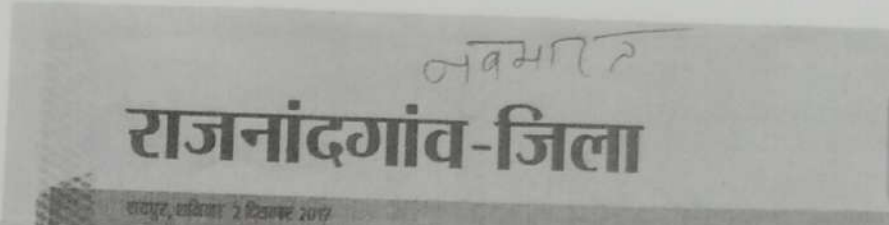 नवभारत
राजनांदगांव-जिला
रायपुर, शनिवार 2 दिसम्बर 2017